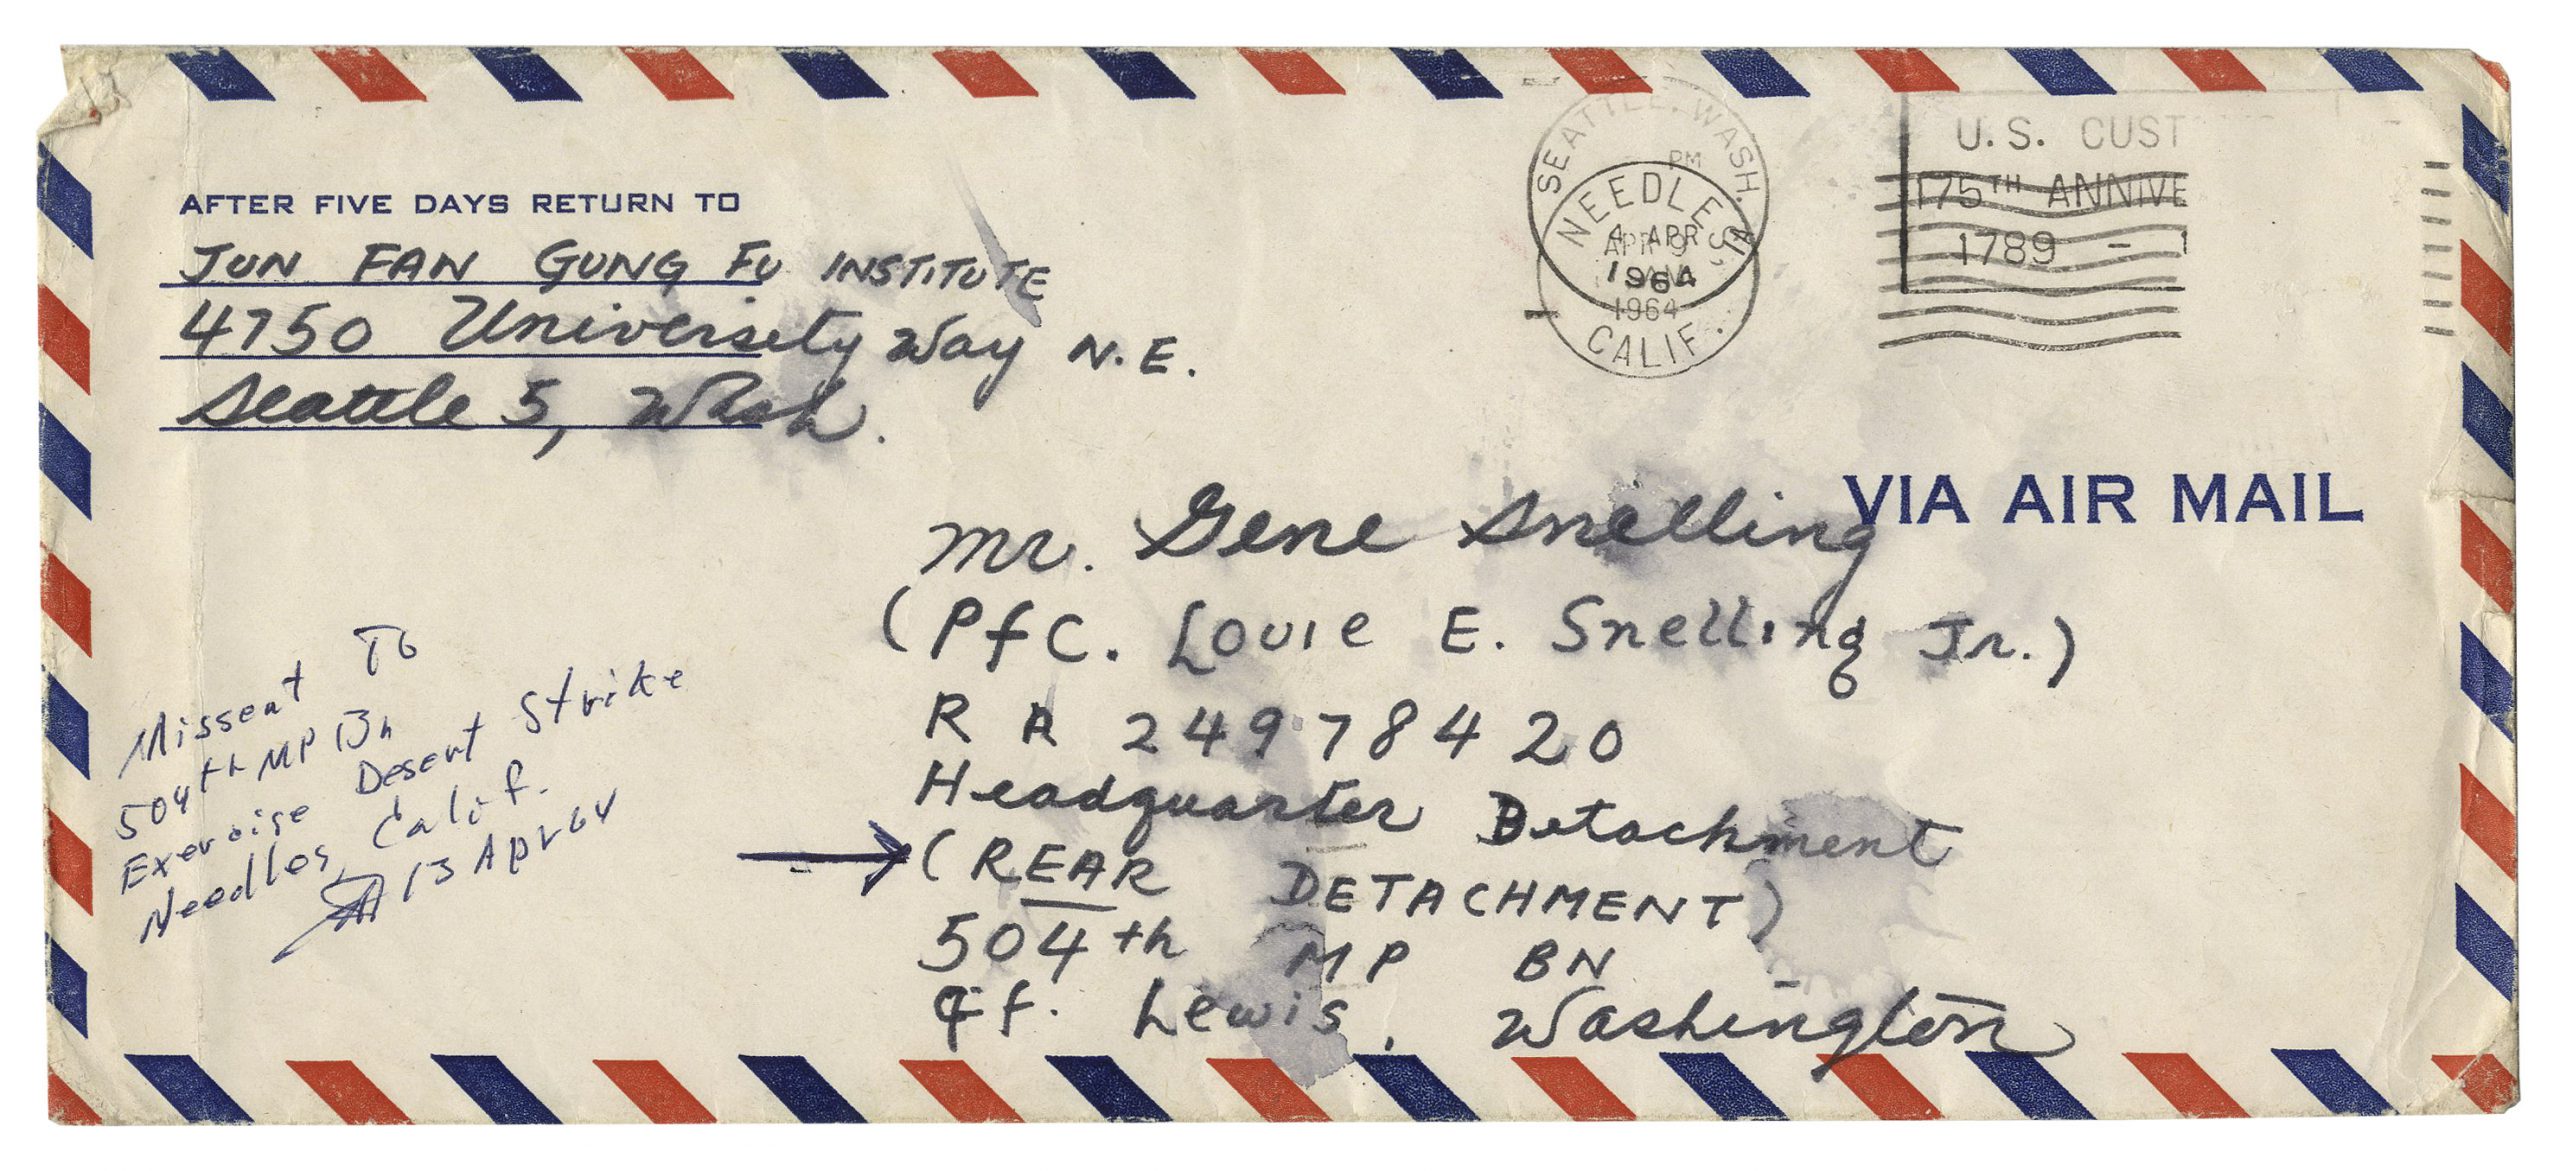 AFTER FIVE DAYS RETURN TO
JUN FAN GUNG FU INSTITUTE
4750 University Way N.E.
Seattle 5, Wash.
SEATTLE, WASH.
PM
APR 9
1964
NEEDLES,
4 APR
1964
CALIF.
U.S. CUST
175TH ANNIVE
1789 - 1
VIA AIR MAIL
Mr. Gene Snelling
(Pfc. Louie E. Snelling Jr.)
R A 24978420
Headquarter Detachment
(REAR DETACHMENT)
504th MP BN
Ft. Lewis, Washington
Missent To
504th MP Bn
Exercise Desert Strike
Needles, Calif.
13 Apr 64